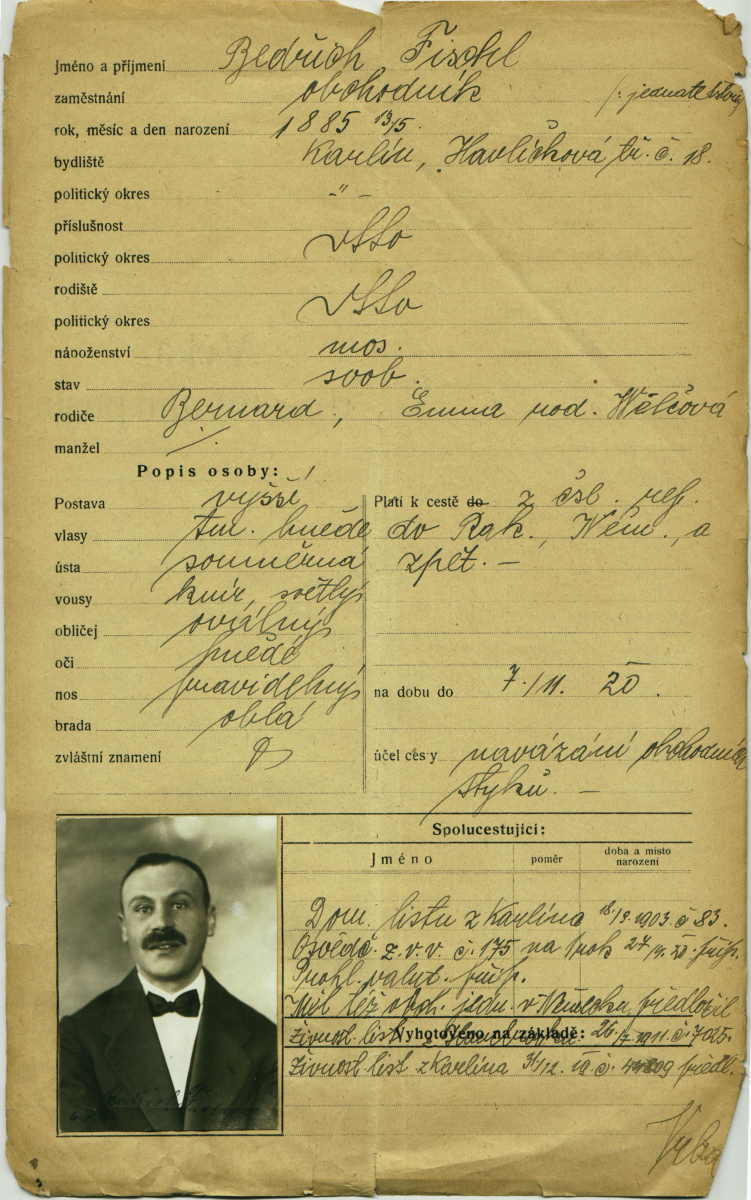 Jméno a příjmení Bedřich Fischl
zaměstnání obchodník
rok, měsíc a den narození 1885 13/5.
bydliště Karlín, Havlíčková tř. č. 18.
politický okres -"-
příslušnost
politický okres
rodiště
politický okres
náboženství mos.
stav svob.
rodiče Bernard, Emma rod.
manžel ./.
Popis osoby:
Postava vyšší
vlasy tm. hnědé
ústa souměrná
vousy knír, světlý
obličej oválný
oči hnědé
nos pravidelný
brada oblá
zvláštní znamení
Platí k cestě do z čsl. rep.
do Rak., Něm., a
zpět. —
na dobu do 7./11. 20.
účel cesy navázání obchodních
styků. —
Spolucestující:
Jméno poměr doba a místo narození
Dom. listu z Karlína 1903 č 83.
Osvědč. z. v. v. č. 175 na 1 rok
Prohl. valut. přip.
Měl též obch. jedn. v Německu předložil
Živnost. list 1911 č 7025.
Vyhotoveno na základě:
Živnost. list z Karlína předl.